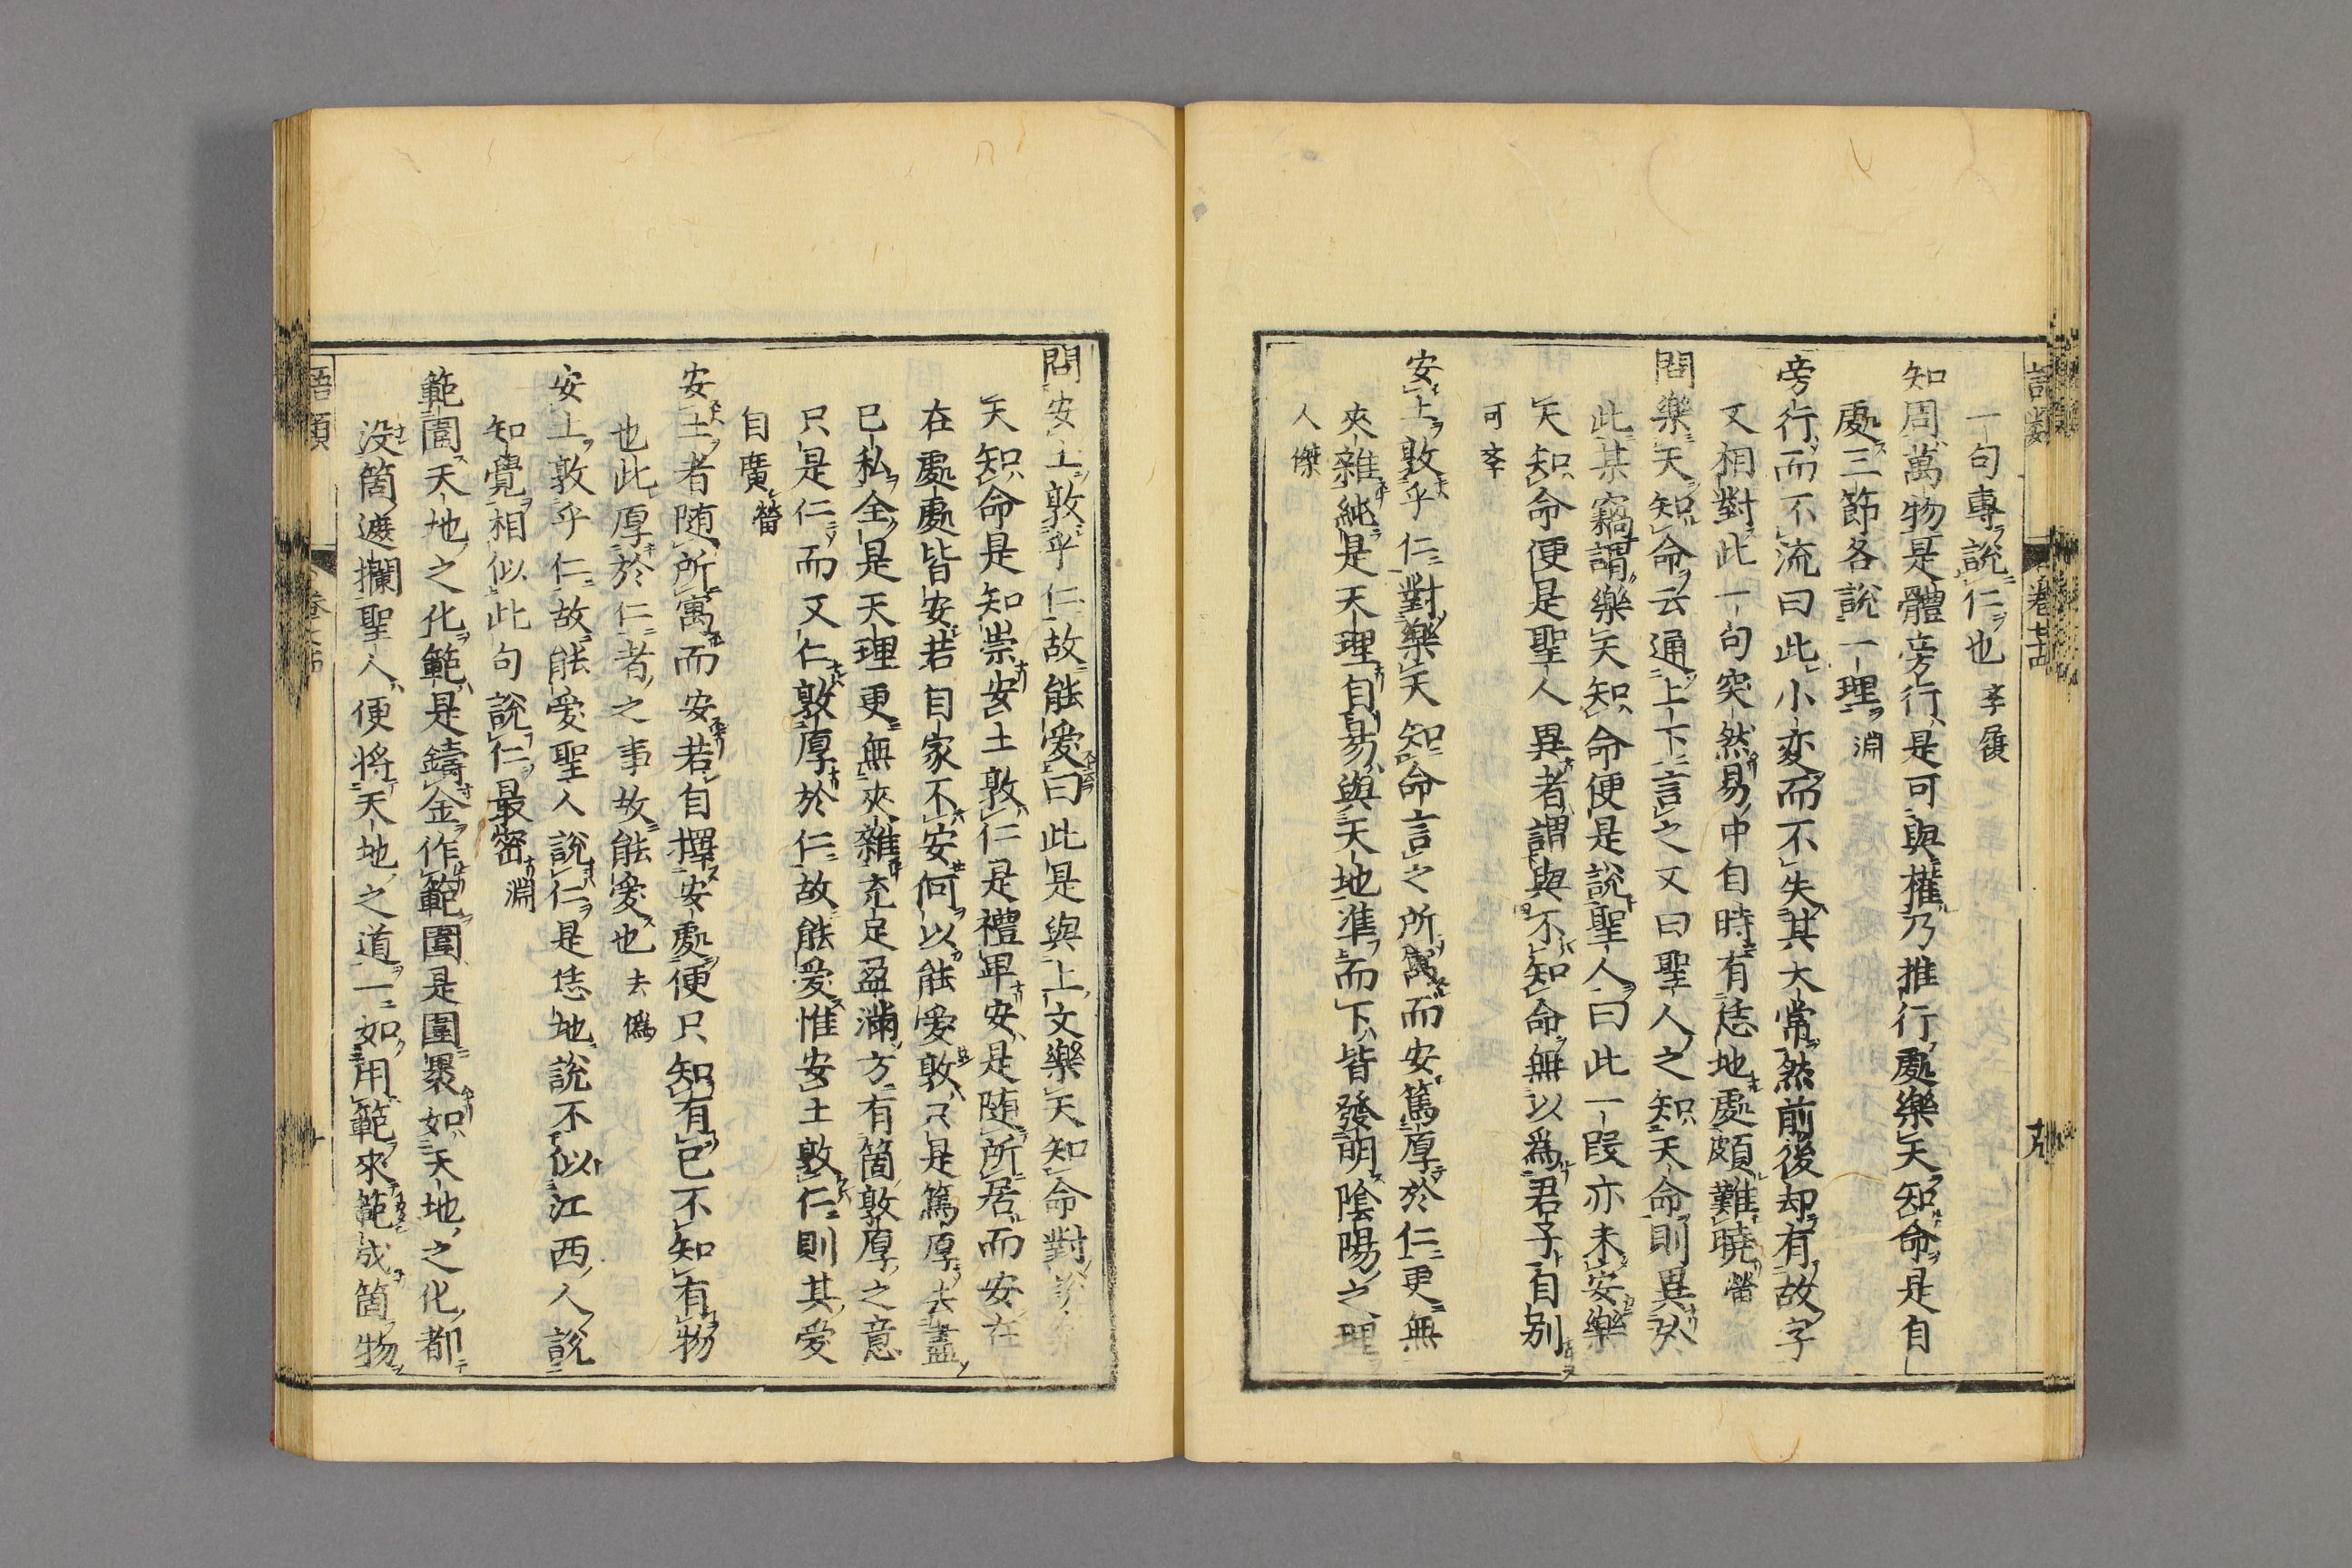 一句專說仁也 孝展
知周萬物是體旁行是可與權乃推行處樂天知命是自
處三節各說一理 淵
旁行而不流曰此小変而不失其大常然前後却有故字
又相對此一句突然易中自時有恁地處頗難曉 䕫
問樂天知命云通上下言之又曰聖人之知天命則異於
此某竊謂樂天知命便是說聖人曰此一段亦未安樂
天知命便是聖人異者謂與不知命無以爲君子自別
可孝
安土敦乎仁對樂天知命言之所寓而安篤厚於仁更無
夾雜純是天理自易與天地準而下皆發明陰陽之理
人傑
語類 卷七十四
問安土敦乎仁故能愛曰此是與上文樂天知命對
天知命是知崇安土敦仁是禮卑安是随所居而安在
在處處皆安若自家不安何以能愛敦只是篤厚去盡
已私全是天理更無夾雜充足盈滿方有箇敦厚之意
只是仁而又仁敦厚於仁故能爱惟安土敦仁則其愛
自廣 䕫
安土者随所寓而安若自擇安處便只知有已不知有物
也此厚於仁者之事故能愛也 去僞
安土敦乎仁故能愛聖人說仁是恁地說不似江西人說
知覺相似此句說仁最密 淵
範圍天地之化範是鑄金作範圍是圍褁如天地之化都
没箇遮攔聖人便將天地之道一如用範來範成箇物
語類